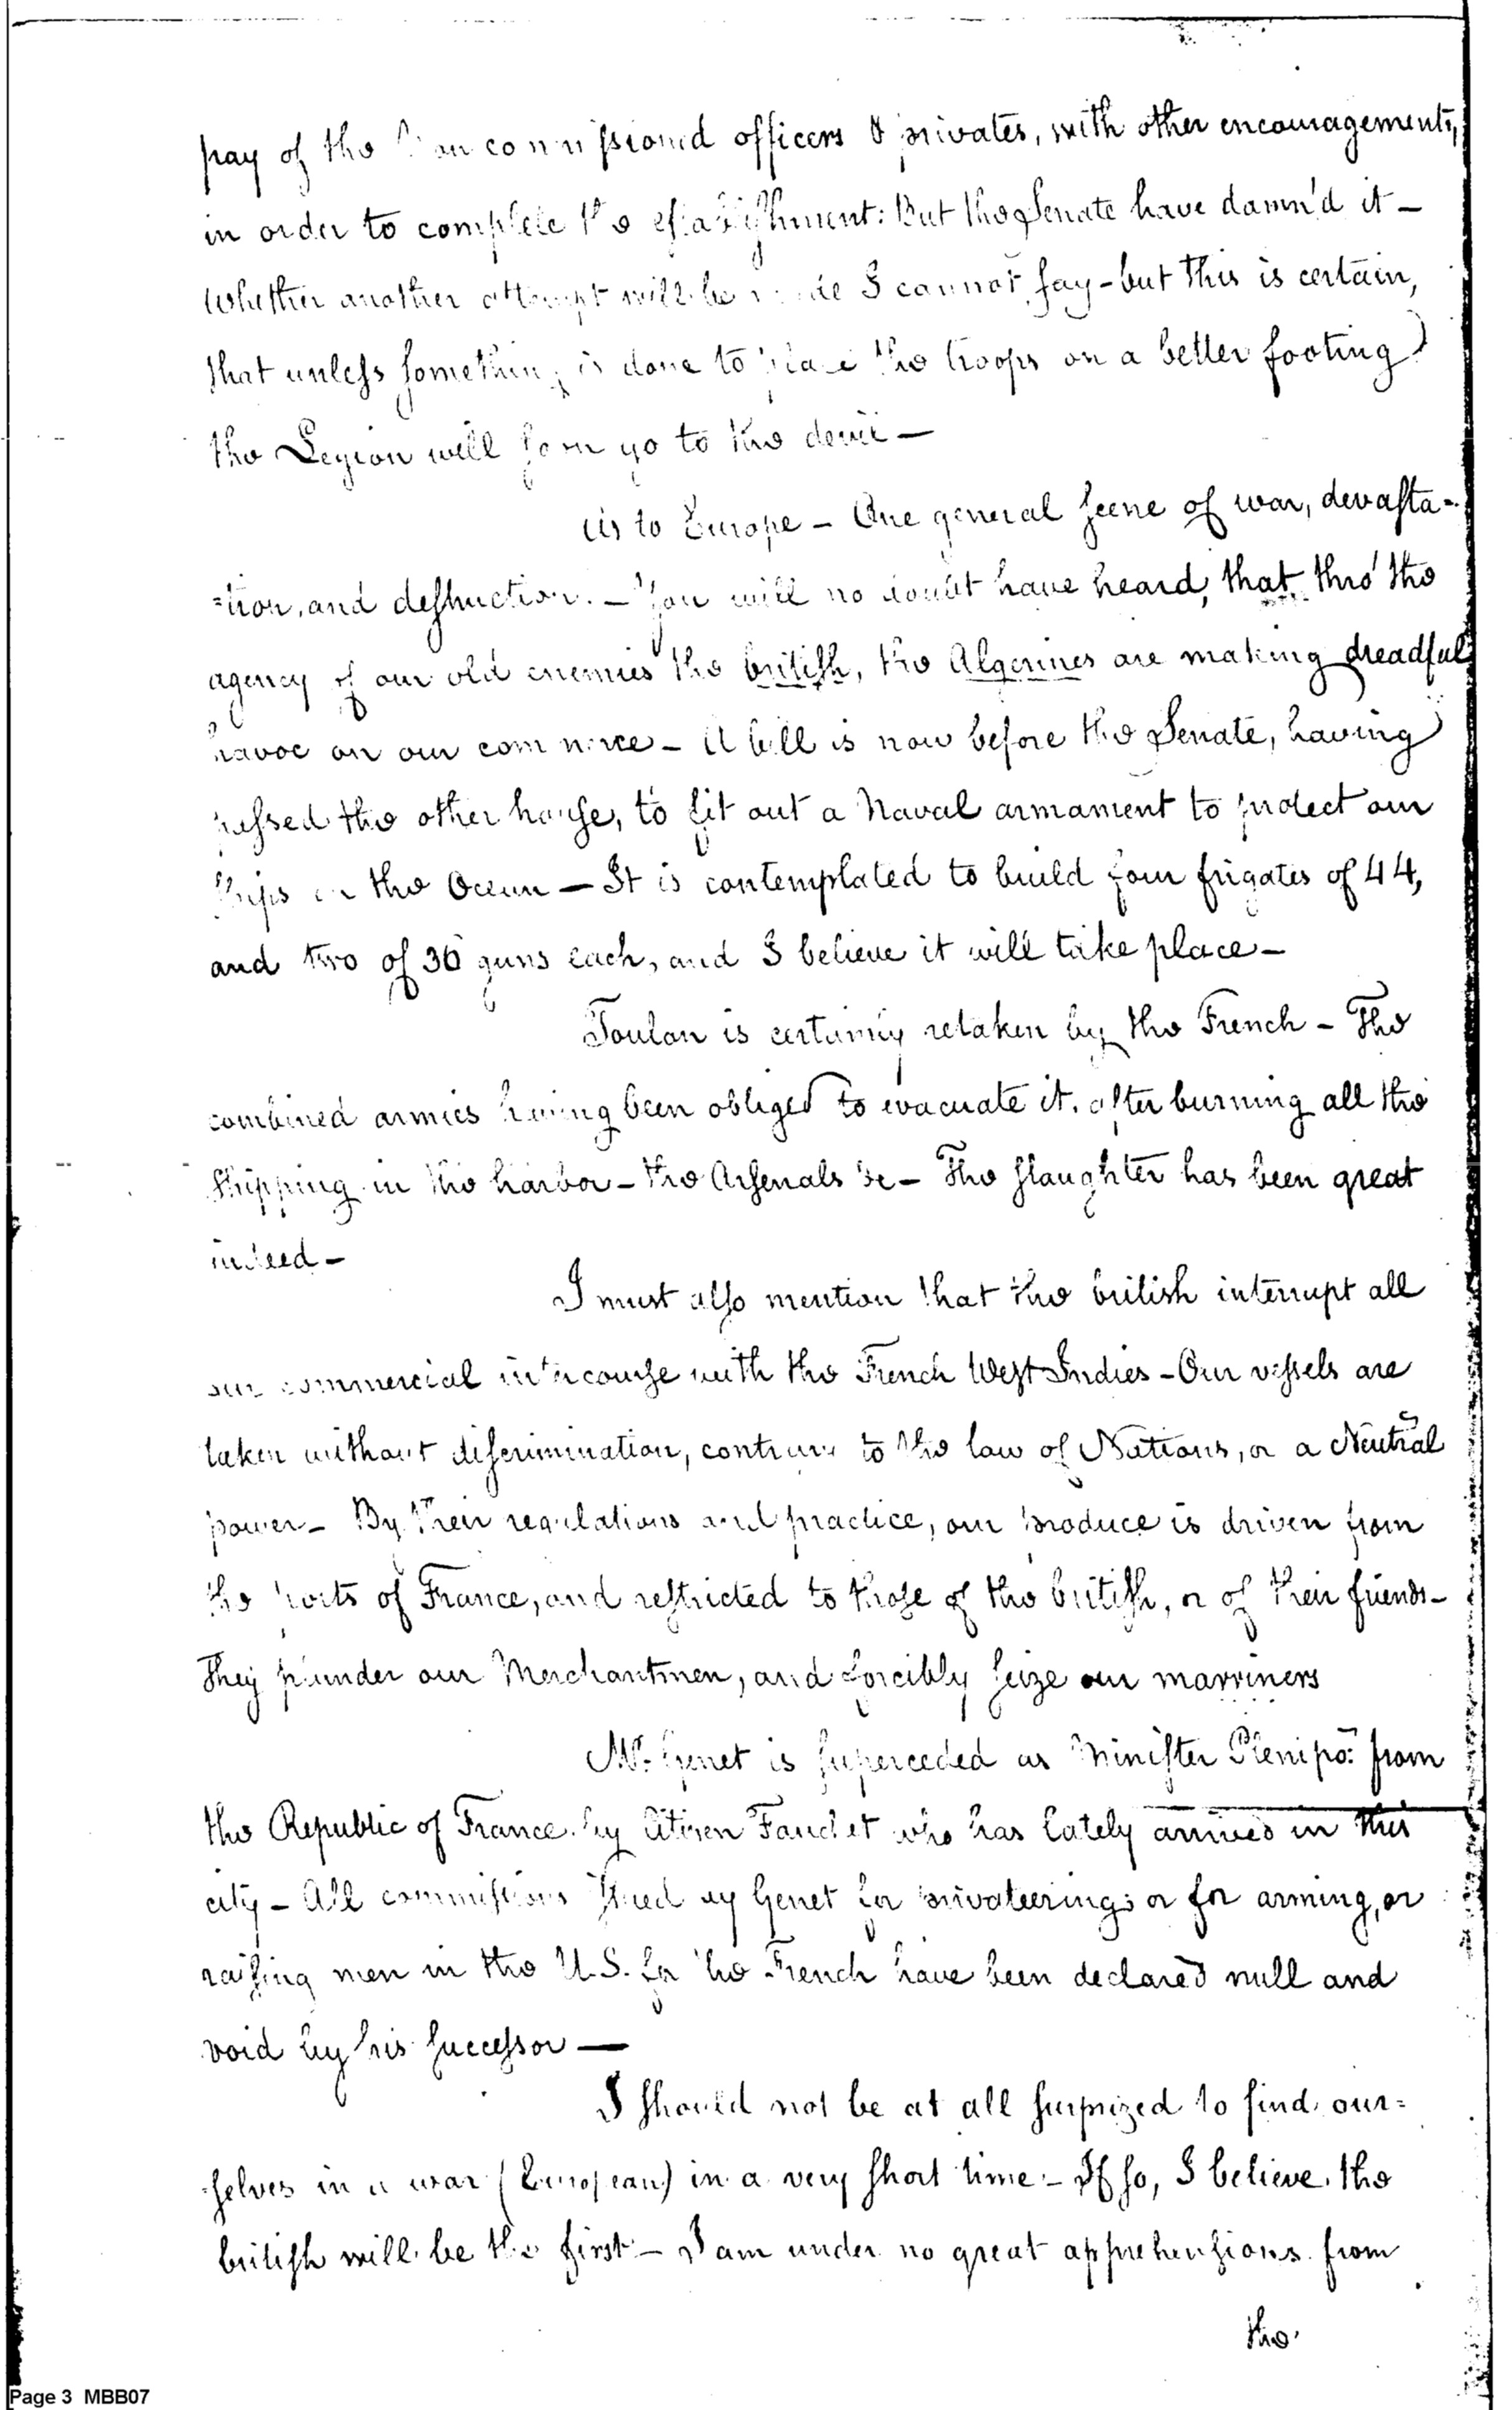 pay of the non commissioned officers & privates, with other encouragements,
in order to complete the establishment: But the Senate have damn'd it –
Whether another attempt will be made I cannot say – but this is certain,
that unless something is done to place the troops on a better footing
the Legion will soon go to the devil –
As to Europe – One general scene of war, devasta-
=tion, and destruction. – You will no doubt have heard, that, thro' the
agency of our old enemies the british, the Algerines are making dreadful
havoc on our commerce – A bill is now before the Senate, having
passed the other house, to fit out a Naval armament to protect our
ships in the Ocean – It is contemplated to build four frigates of 44,
and two of 36 guns each, and I believe it will take place –
Toulon is certainly retaken by the French – The
combined armies having been obliged to evacuate it, after burning all the
shipping in the harbor – the Arsenals &c – The slaughter has been great
indeed –
I must also mention that the british interrupt all
our commercial intercourse with the French West Indies – Our vessels are
taken without discrimination, contrary to the law of Nations, or a Neutral
power – By their regulations and practice, our produce is driven from
the ports of France, and restricted to those of the british, or of their friends –
They plunder our Merchantmen, and forcibly seize our marriners
Mr. Genet is superceded as Minister Plenipo: from
the Republic of France by Citizen Fauchet who has lately arrived in this
city – All commissions issued by Genet for privateering, or for arming, or
raising men in the U.S. for the French have been declared null and
void by his successor –
I should not be at all surprized to find our=
=selves in a war (European) in a very short time – If so, I believe the
british will be the first – I am under no great apprehensions from
the
Page 3 MBB07